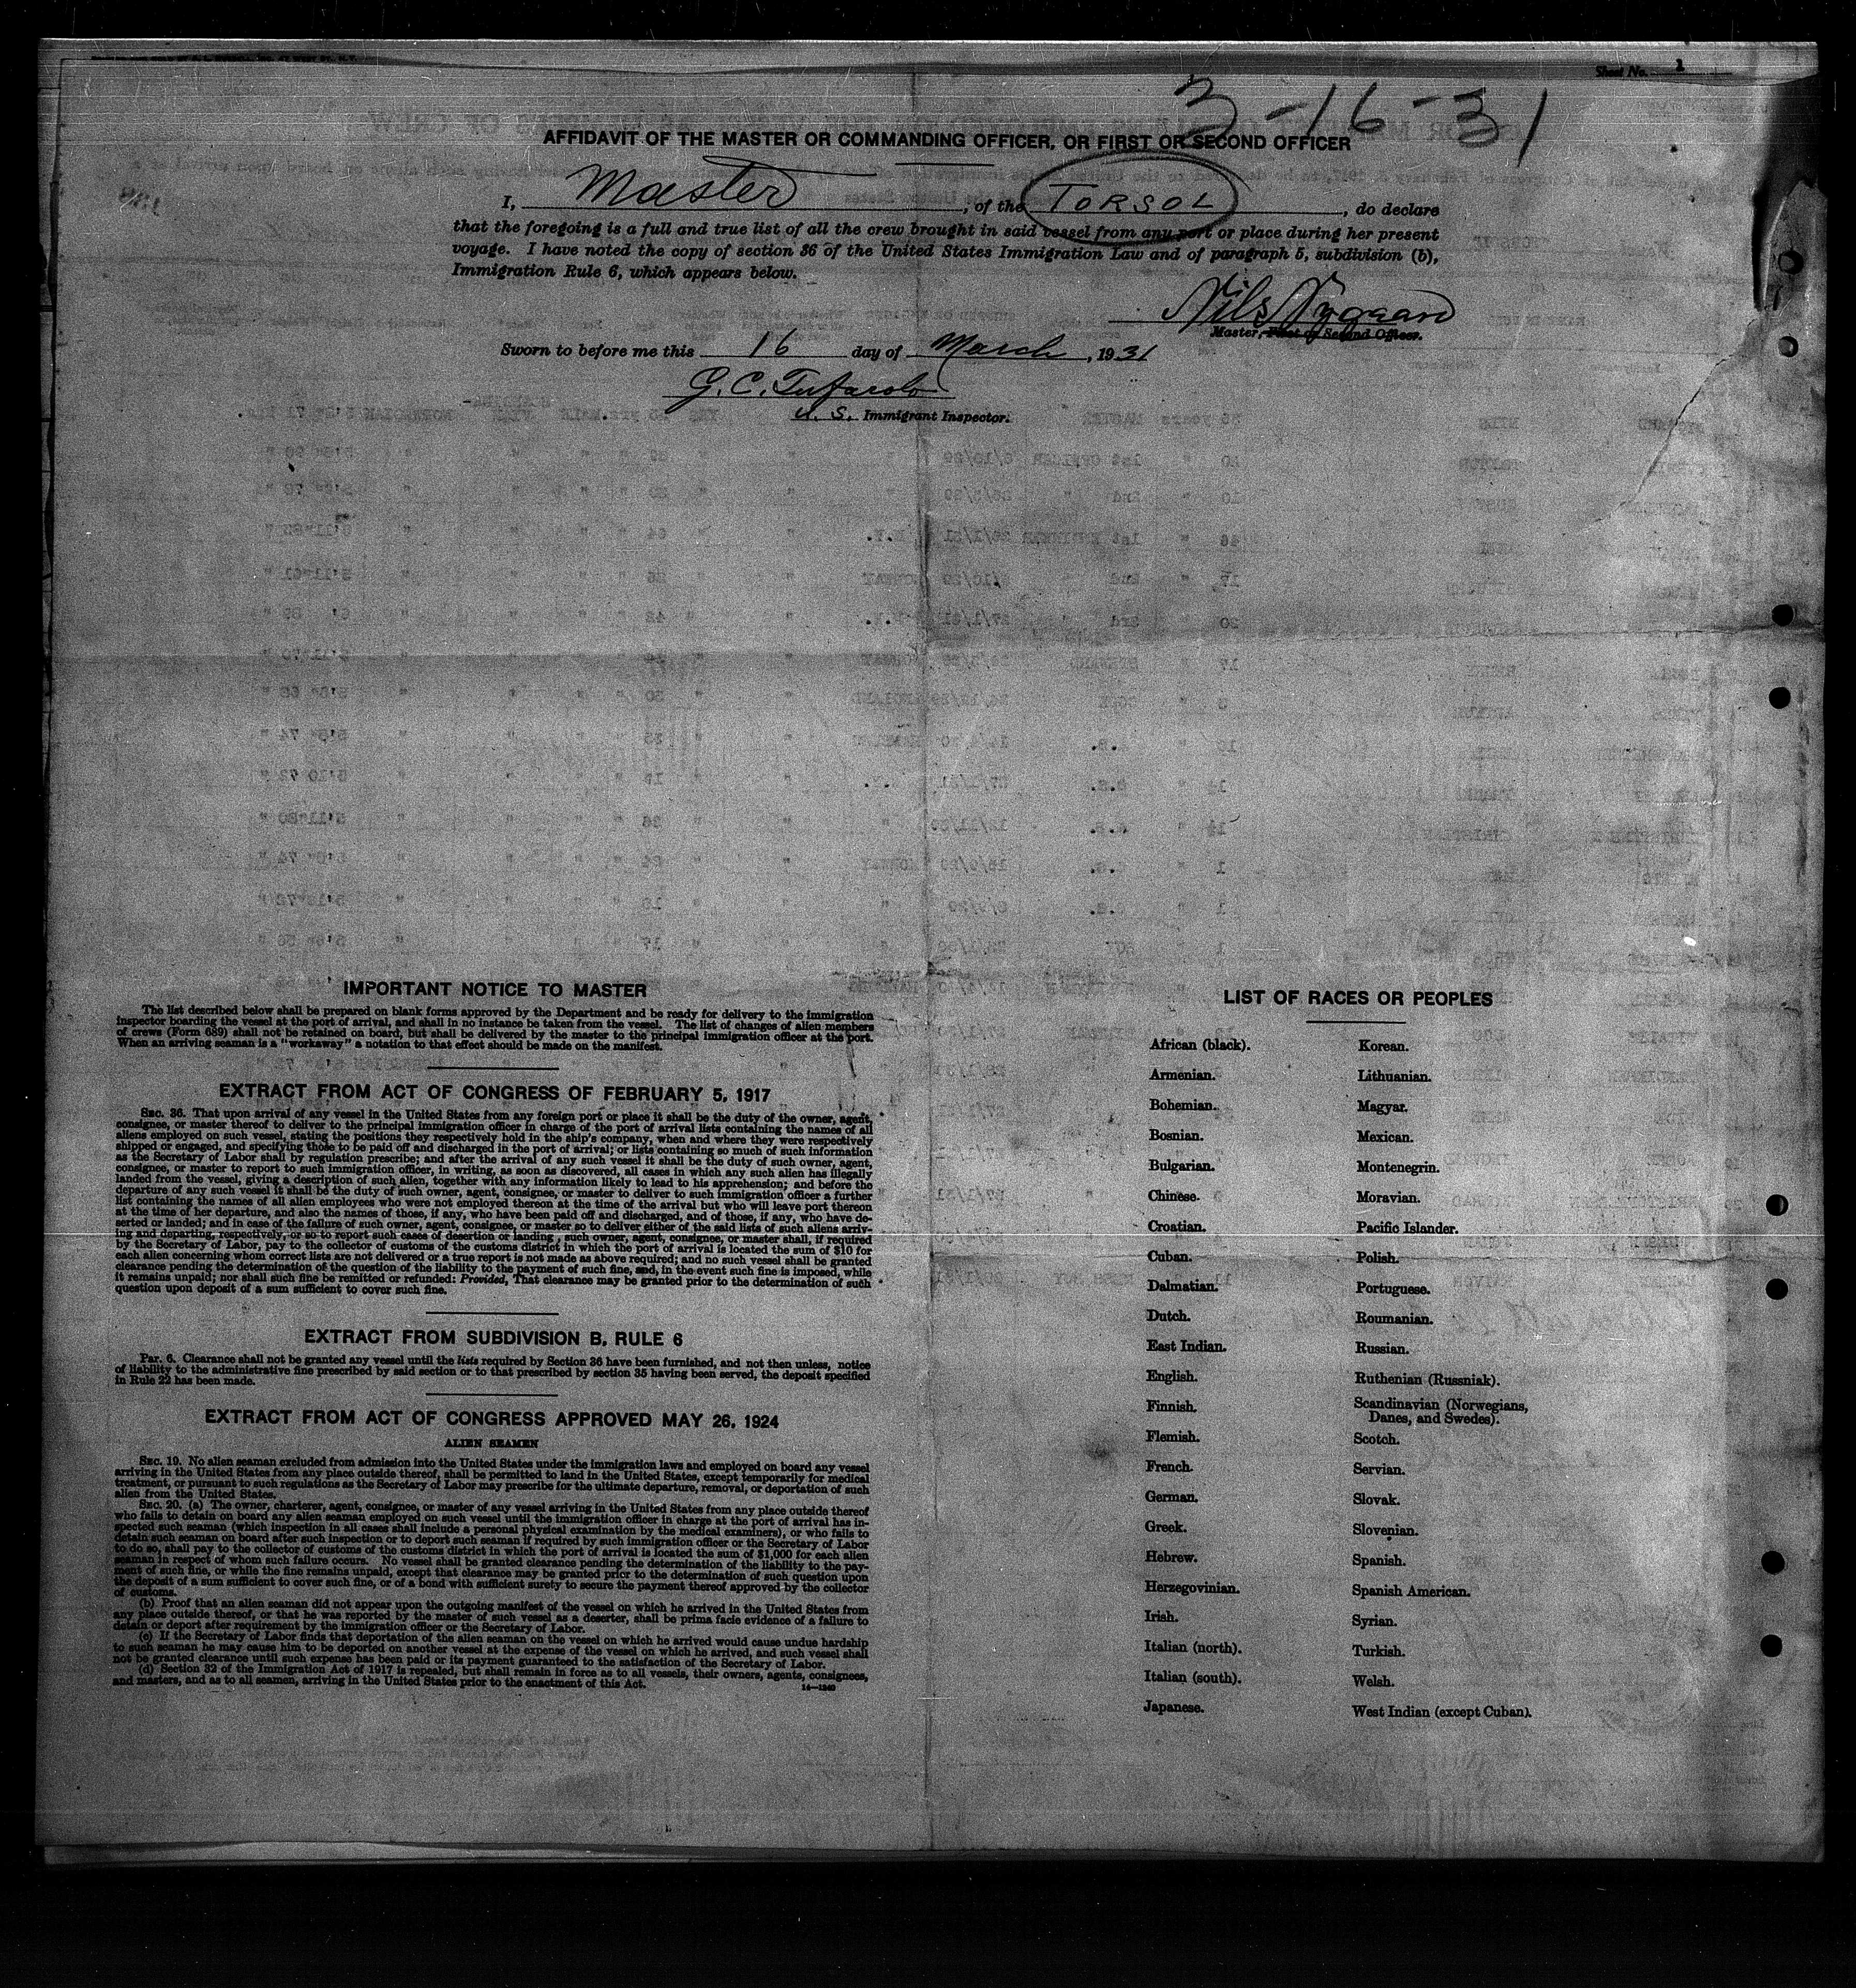 Sheet No. 1
3-16-31
AFFIDAVIT OF THE MASTER OR COMMANDING OFFICER, OR FIRST OR SECOND OFFICER
I, Master, of the TORSOL, do declare
that the foregoing is a full and true list of all the crew brought in said vessel from any port or place during her present
voyage. I have noted the copy of section 36 of the United States Immigration Law and of paragraph 5, subdivision (b),
Immigration Rule 6, which appears below.
Nils Nygaard
Master, First or Second Officer.
Sworn to before me this 16 day of March, 1931
G. C. Tufarolo
U. S. Immigrant Inspector.
IMPORTANT NOTICE TO MASTER
The list described below shall be prepared on blank forms approved by the Department and be ready for delivery to the immigration
inspector boarding the vessel at the port of arrival, and shall in no instance be taken from the vessel. The list of changes of alien members
of crews (Form 689) shall not be retained on board, but shall be delivered by the master to the principal immigration officer at the port.
When an arriving seaman is a "workaway" a notation to that effect should be made on the manifest.
EXTRACT FROM ACT OF CONGRESS OF FEBRUARY 5, 1917
SEC. 36. That upon arrival of any vessel in the United States from any foreign port or place it shall be the duty of the owner, agent,
consignee, or master thereof to deliver to the principal immigration officer in charge of the port of arrival lists containing the names of all
aliens employed on such vessel, stating the positions they respectively hold in the ship's company, when and where they were respectively
shipped or engaged, and specifying those to be paid off and discharged in the port of arrival; or lists containing so much of such information
as the Secretary of Labor shall by regulation prescribe; and after the arrival of any such vessel it shall be the duty of such owner, agent,
consignee, or master to report to such immigration officer, in writing, as soon as discovered, all cases in which any such alien has illegally
landed from the vessel, giving a description of such alien, together with any information likely to lead to his apprehension; and before the
departure of any such vessel it shall be the duty of such owner, agent, consignee, or master to deliver to such immigration officer a further
list containing the names of all alien employees who were not employed thereon at the time of the arrival but who will leave port thereon
at the time of her departure, and also the names of those, if any, who have been paid off and discharged, and of those, if any, who have de-
serted or landed; and in case of the failure of such owner, agent, consignee, or master so to deliver either of the said lists of such aliens arriv-
ing and departing, respectively, or so to report such cases of desertion or landing, such owner, agent, consignee, or master shall, if required
by the Secretary of Labor, pay to the collector of customs of the customs district in which the port of arrival is located the sum of $10 for
each alien concerning whom correct lists are not delivered or a true report is not made as above required; and no such vessel shall be granted
clearance pending the determination of the question of the liability to the payment of such fine, and, in the event such fine is imposed, while
it remains unpaid; nor shall such fine be remitted or refunded: Provided, That clearance may be granted prior to the determination of such
question upon deposit of a sum sufficient to cover such fine.
EXTRACT FROM SUBDIVISION B, RULE 6
Par. 6. Clearance shall not be granted any vessel until the lists required by Section 36 have been furnished, and not then unless, notice
of liability to the administrative fine prescribed by said section or to that prescribed by section 35 having been served, the deposit specified
in Rule 22 has been made.
EXTRACT FROM ACT OF CONGRESS APPROVED MAY 26, 1924
ALIEN SEAMEN
SEC. 19. No alien seaman excluded from admission into the United States under the immigration laws and employed on board any vessel
arriving in the United States from any place outside thereof, shall be permitted to land in the United States, except temporarily for medical
treatment, or pursuant to such regulations as the Secretary of Labor may prescribe for the ultimate departure, removal, or deportation of such
alien from the United States.
SEC. 20. (a) The owner, charterer, agent, consignee, or master of any vessel arriving in the United States from any place outside thereof
who fails to detain on board any alien seaman employed on such vessel until the immigration officer in charge at the port of arrival has in-
spected such seaman (which inspection in all cases shall include a personal physical examination by the medical examiners), or who fails to
detain such seaman on board after such inspection or to deport such seaman if required by such immigration officer or the Secretary of Labor
to do so, shall pay to the collector of customs of the customs district in which the port of arrival is located the sum of $1,000 for each alien
seaman in respect of whom such failure occurs. No vessel shall be granted clearance pending the determination of the liability to the pay-
ment of such fine, or while the fine remains unpaid, except that clearance may be granted prior to the determination of such question upon
the deposit of a sum sufficient to cover such fine, or of a bond with sufficient surety to secure the payment thereof approved by the collector
of customs.
(b) Proof that an alien seaman did not appear upon the outgoing manifest of the vessel on which he arrived in the United States from
any place outside thereof, or that he was reported by the master of such vessel as a deserter, shall be prima facie evidence of a failure to
detain or deport after requirement by the immigration officer or the Secretary of Labor.
(c) If the Secretary of Labor finds that deportation of the alien seaman on the vessel on which he arrived would cause undue hardship
to such seaman he may cause him to be deported on another vessel at the expense of the vessel on which he arrived, and such vessel shall
not be granted clearance until such expense has been paid or its payment guaranteed to the satisfaction of the Secretary of Labor.
(d) Section 32 of the Immigration Act of 1917 is repealed, but shall remain in force as to all vessels, their owners, agents, consignees,
and masters, and as to all seamen, arriving in the United States prior to the enactment of this Act.
14—1240
LIST OF RACES OR PEOPLES
African (black).
Armenian.
Bohemian.
Bosnian.
Bulgarian.
Chinese.
Croatian.
Cuban.
Dalmatian.
Dutch.
East Indian.
English.
Finnish.
Flemish.
French.
German.
Greek.
Hebrew.
Herzegovinian.
Irish.
Italian (north).
Italian (south).
Japanese.
Korean.
Lithuanian.
Magyar.
Mexican.
Montenegrin.
Moravian.
Pacific Islander.
Polish.
Portuguese.
Roumanian.
Russian.
Ruthenian (Russniak).
Scandinavian (Norwegians,
Danes, and Swedes).
Scotch.
Servian.
Slovak.
Slovenian.
Spanish.
Spanish American.
Syrian.
Turkish.
Welsh.
West Indian (except Cuban).